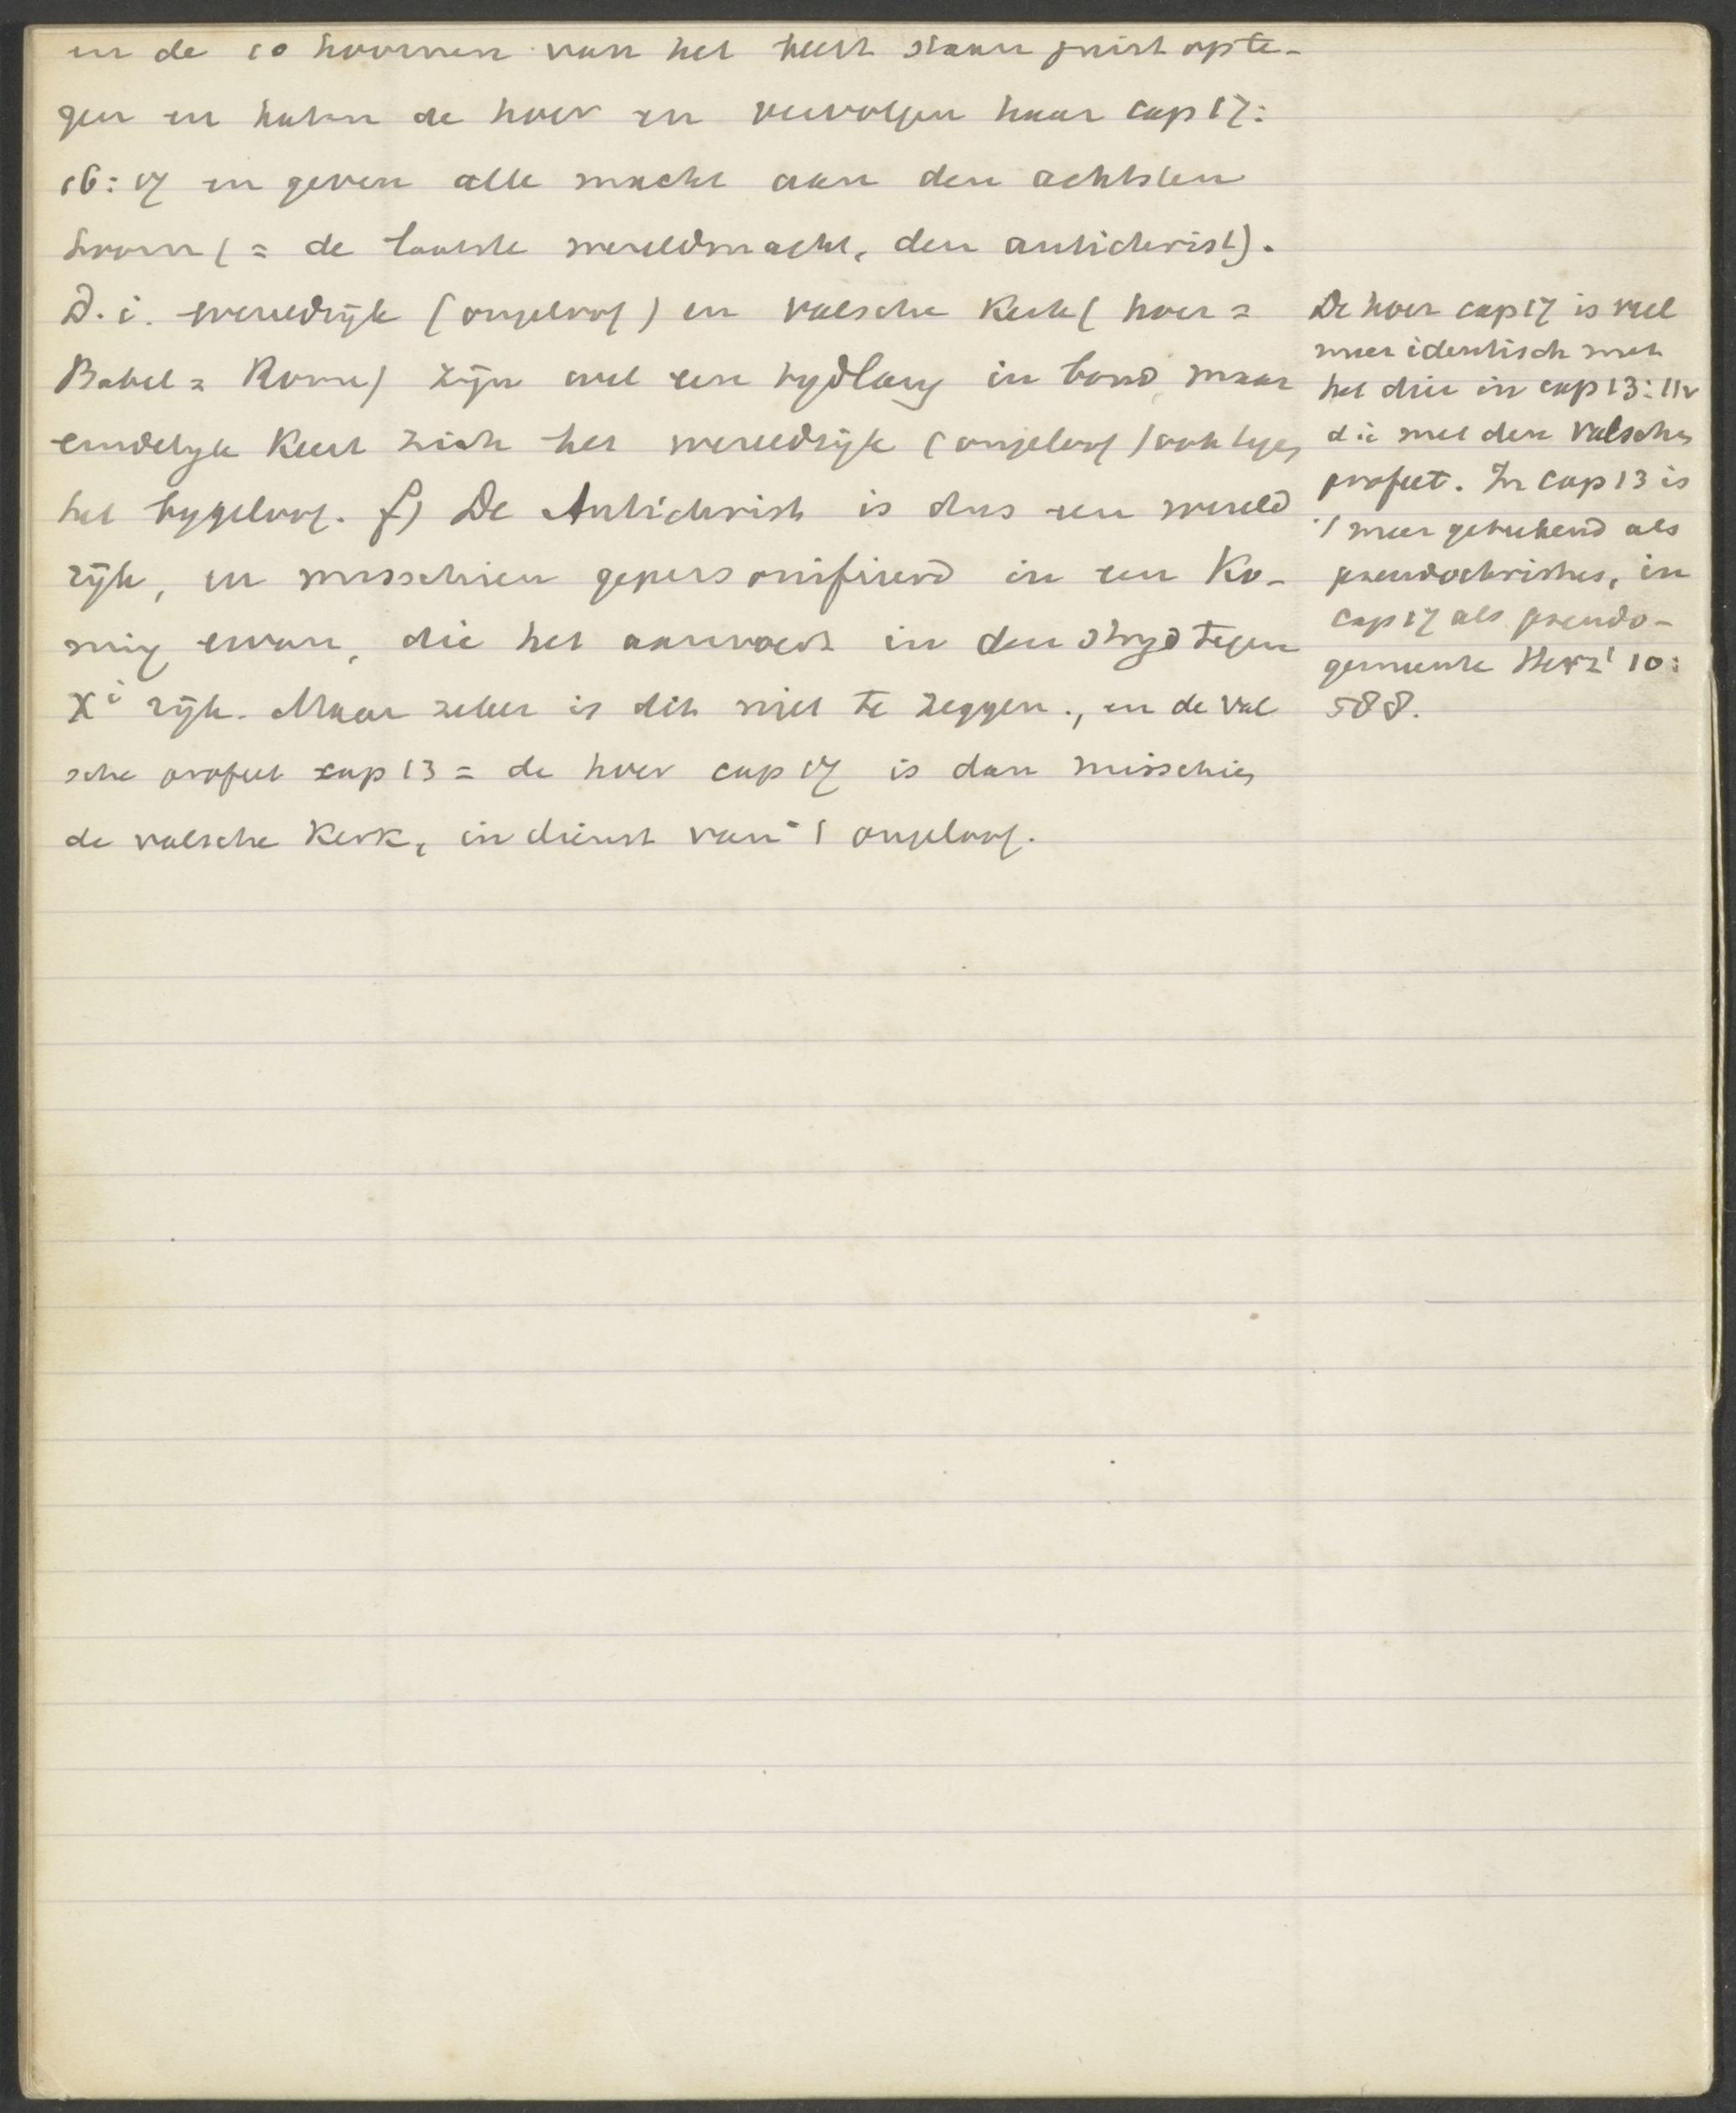 en de 10 hoornen van het beest staan juist opte-
gen en haten de hoer en vervolgen haar cap 17:
16:17 en geven alle macht aan den achtsten
hoorn (= de laatste wereldmacht, den antichrist).
D.i. wereldrijk (ongeloof) en valsche Kerk (hoer =
Babel = Rome) zijn wel een tijdlang in bond, maar
eindelijk keert zich het wereldrijk (ongeloof) ook tegen
het bijgeloof. f) De Antichrist is dus een wereld
rijk, en misschien gepersonifieerd in een Ko-
ning ervan, die het aanvoert in den strijd tegen
Xi rijk. Maar zeker is dit niet te zeggen., en de val
sche profeet cap 13 = de hoer cap 17 is dan misschien
de valsche Kerk, in dienst van 't ongeloof.
De hoer cap 17 is veel
meer identisch met
het dier in cap 13:11v
d.i. met den valschen
profeet. In cap 13 is
't meer geteekend als
pseudochristus, in
cap 17 als pseudo-
gemeente Herz¹ 10:
588.